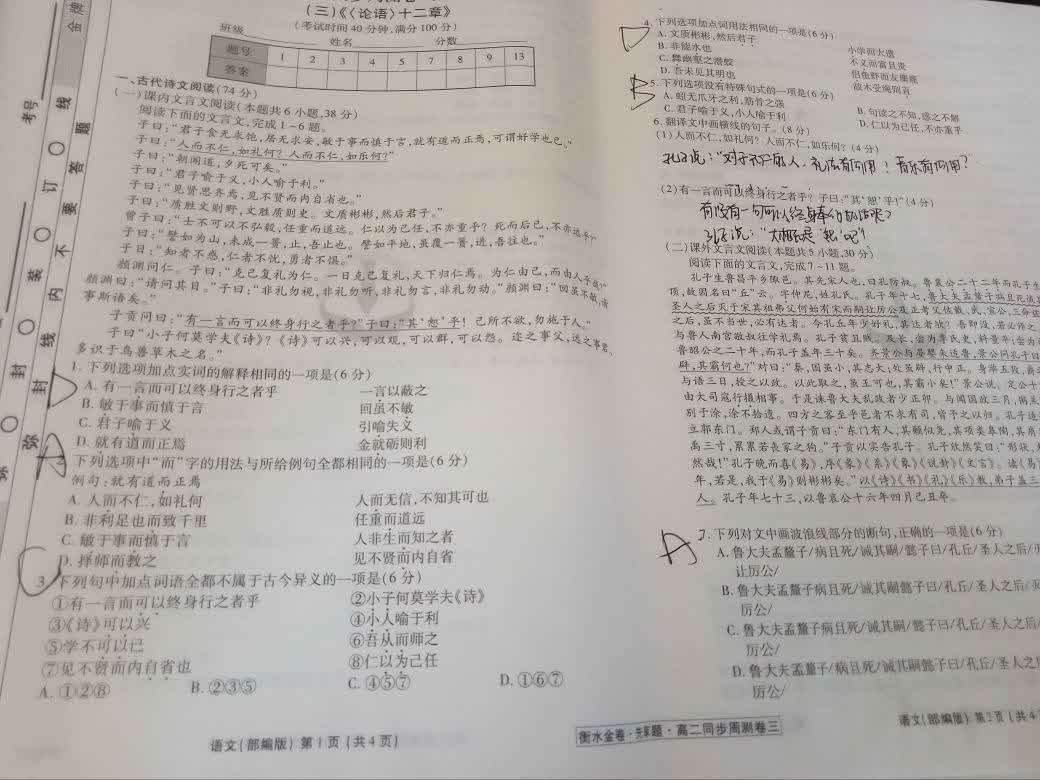 (三)《〈论语〉十二章》
(考试时间40分钟,满分100分)
班级 姓名 分数
题号 1 2 3 4 5 7 8 9 13
答案
一、古代诗文阅读(74分)
(一)课内文言文阅读(本题共6小题,38分)
阅读下面的文言文,完成1~6题。
子曰:“君子食无求饱,居无求安,敏于事而慎于言,就有道而正焉,可谓好学也已。”
子曰:“人而不仁,如礼何?人而不仁,如乐何?”
子曰:“朝闻道,夕死可矣。”
子曰:“君子喻于义,小人喻于利。”
子曰:“见贤思齐焉,见不贤而内自省也。”
子曰:“质胜文则野,文胜质则史。文质彬彬,然后君子。”
曾子曰:“士不可以不弘毅,任重而道远。仁以为己任,不亦重乎?死而后已,不亦远乎?”
子曰:“譬如为山,未成一篑,止,吾止也。譬如平地,虽覆一篑,进,吾往也。”
子曰:“知者不惑,仁者不忧,勇者不惧。”
颜渊问仁。子曰:“克己复礼为仁。一日克己复礼,天下归仁焉。为仁由己,而由人乎哉?”
颜渊曰:“请问其目。”子曰:“非礼勿视,非礼勿听,非礼勿言,非礼勿动。”颜渊曰:“回虽不敏,请
事斯语矣。”
子贡问曰:“有一言而可以终身行之者乎?”子曰:“其‘恕’乎!己所不欲,勿施于人。”
子曰:“小子何莫学夫《诗》?《诗》可以兴,可以观,可以群,可以怨。迩之事父,远之事君,
多识于鸟兽草木之名。”
1. 下列选项加点实词的解释相同的一项是(6分)
A. 有一言而可以终身行之者乎 一言以蔽之
B. 敏于事而慎于言 回虽不敏
C. 君子喻于义 引喻失义
D. 就有道而正焉 金就砺则利
下列选项中“而”字的用法与所给例句全都相同的一项是(6分)
例句:就有道而正焉
A. 人而不仁,如礼何 人而无信,不知其可也
B. 非利足也而致千里 任重而道远
C. 敏于事而慎于言 人非生而知之者
D. 择师而教之 见不贤而内自省
C
3. 下列句中加点词语全都不属于古今异义的一项是(6分)
①有一言而可以终身行之者乎 ②小子何莫学夫《诗》
③《诗》可以兴 ④小人喻于利
⑤学不可以已 ⑥吾从而师之
⑦见不贤而内自省也 ⑧仁以为己任
A. ①②⑧ B. ②③⑤ C. ④⑤⑦ D. ①⑥⑦
语文(部编版) 第1页(共4页)
D
4. 下列选项加点词用法相同的一项是(6分)
A. 文质彬彬,然后君子 小学而大遗
B. 非能水也 不义而富且贵
C. 舞幽壑之潜蛟 侣鱼虾而友麋鹿
D. 吾未见其明也 故木受绳则直
B
5. 下列选项没有特殊句式的一项是(6分)
A. 蚓无爪牙之利,筋骨之强 B. 句读之不知,惑之不解
C. 君子喻于义,小人喻于利 D. 仁以为己任,不亦重乎
6. 翻译文中画横线的句子。(8分)
(1)人而不仁,如礼何?人而不仁,如乐何?(4分)
(2)有一言而可以终身行之者乎?子曰:“其‘恕’乎!”(4分)
(二)课外文言文阅读(本题共5小题,30分)
阅读下面的文言文,完成7~11题。
孔子生鲁昌平乡陬邑。其先宋人也,曰孔防叔。鲁襄公二十二年而孔子生
项,故因名曰“丘”云。字仲尼,姓孔氏。孔子年十七,鲁大夫孟釐子病且死诫
圣人之后灭于宋其祖弗父何始有宋而嗣让厉公及正考父佐戴、武、宣公,三命
之后,虽不当世,必有达者。今孔丘年少好礼,其达者欤?吾即没,若必师之
与鲁人南宫敬叔往学礼焉。孔子贫且贱。及长,尝为季氏史,料量平;尝为
鲁昭公之二十年,而孔子盖年三十矣。齐景公与晏婴来适鲁,景公问孔子曰
辟,其霸何也?”对曰:“秦,国虽小,其志大;处虽辟,行中正。身举五羖,爵之
与语三日,授之以政。以此取之,虽王可也,其霸小矣!”景公说。定公十
由大司寇行摄相事。于是诛鲁大夫乱政者少正卯。与闻国政三月,
别于涂,涂不拾遗。四方之客至乎邑者不求有司,皆予之以归。孔子适
立郭东门。郑人或谓子贡曰:“东门有人,其颡似尧,其项类皋陶,其肩
禹三寸,累累若丧家之狗。”子贡以实告孔子。孔子欣然笑曰:“形状,
然哉!”孔子晚而喜《易》,序《彖》《系》《象》《说卦》《文言》。读《易》
年,若是,我于《易》则彬彬矣。”以《诗》《书》《礼》《乐》教,弟子盖三
人。孔子年七十三,以鲁哀公十六年四月己丑卒。
A
7. 下列对文中画波浪线部分的断句,正确的一项是(6分)
A. 鲁大夫孟釐子/病且死/诫其嗣/懿子曰/孔丘/圣人之后/
让厉公/
B. 鲁大夫孟釐子病且死/诫其嗣懿子曰/孔丘/圣人之后/
厉公/
C. 鲁大夫孟釐子病且死/诫其嗣/懿子曰/孔丘/圣人之后/
厉公/
D. 鲁大夫孟釐子/病且死/诫其嗣懿子曰/孔丘/圣人之
厉公/
衡水金卷·先享题·高二同步周测卷三
语文(部编版) 第2页(共4